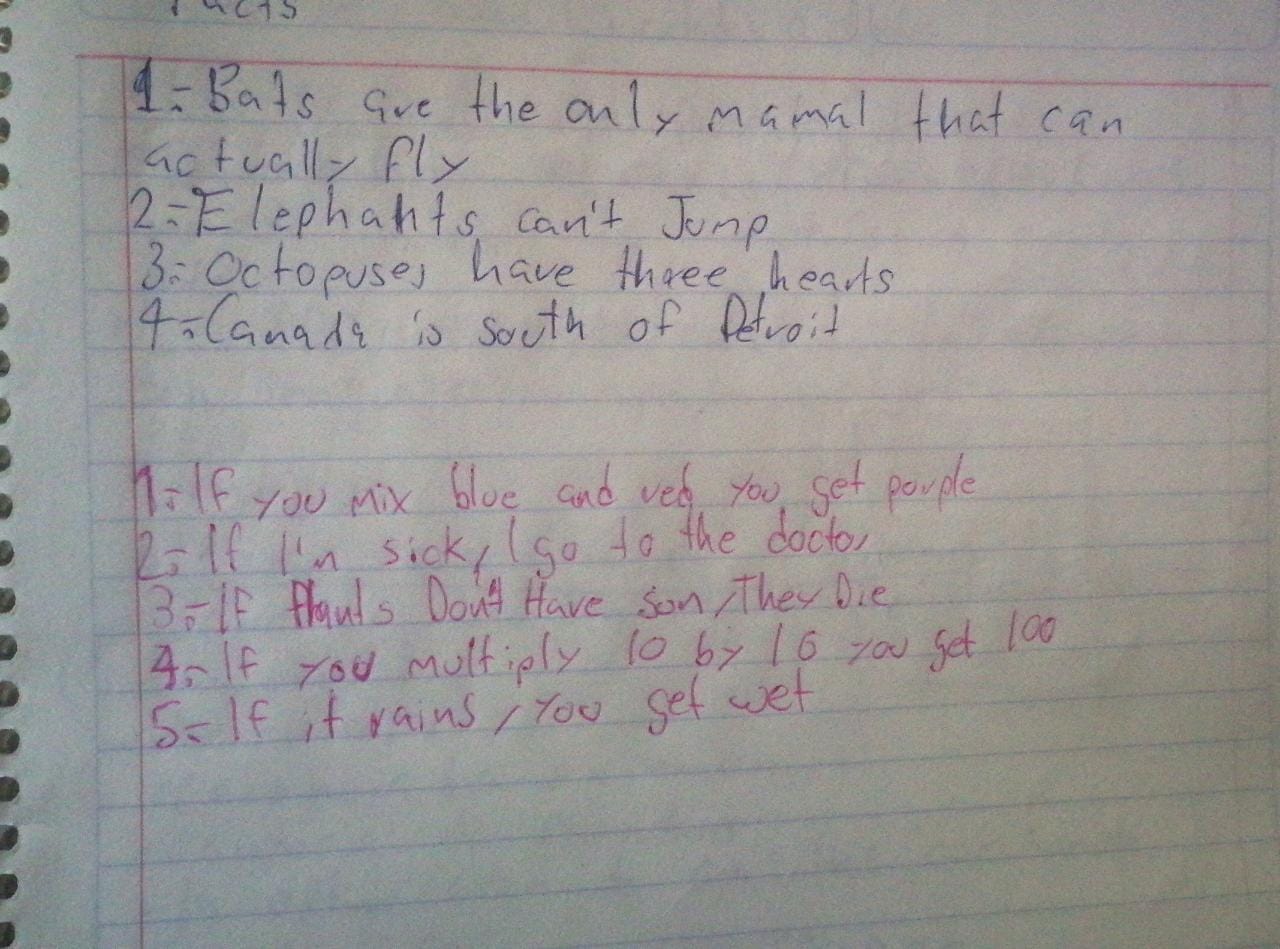 Facts
1=Bats are the only mamal that can
actually fly
2=Elephants can't Jump
3=Octopuses have three hearts
4=Canada is south of Detroit
1=If you mix blue and red you get pouple
2=If I'm sick, I go to the doctor
3=If Plants Don't Have son, They Die
4=If you multiply 10 by 10 you get 100
5=If it rains, You get wet